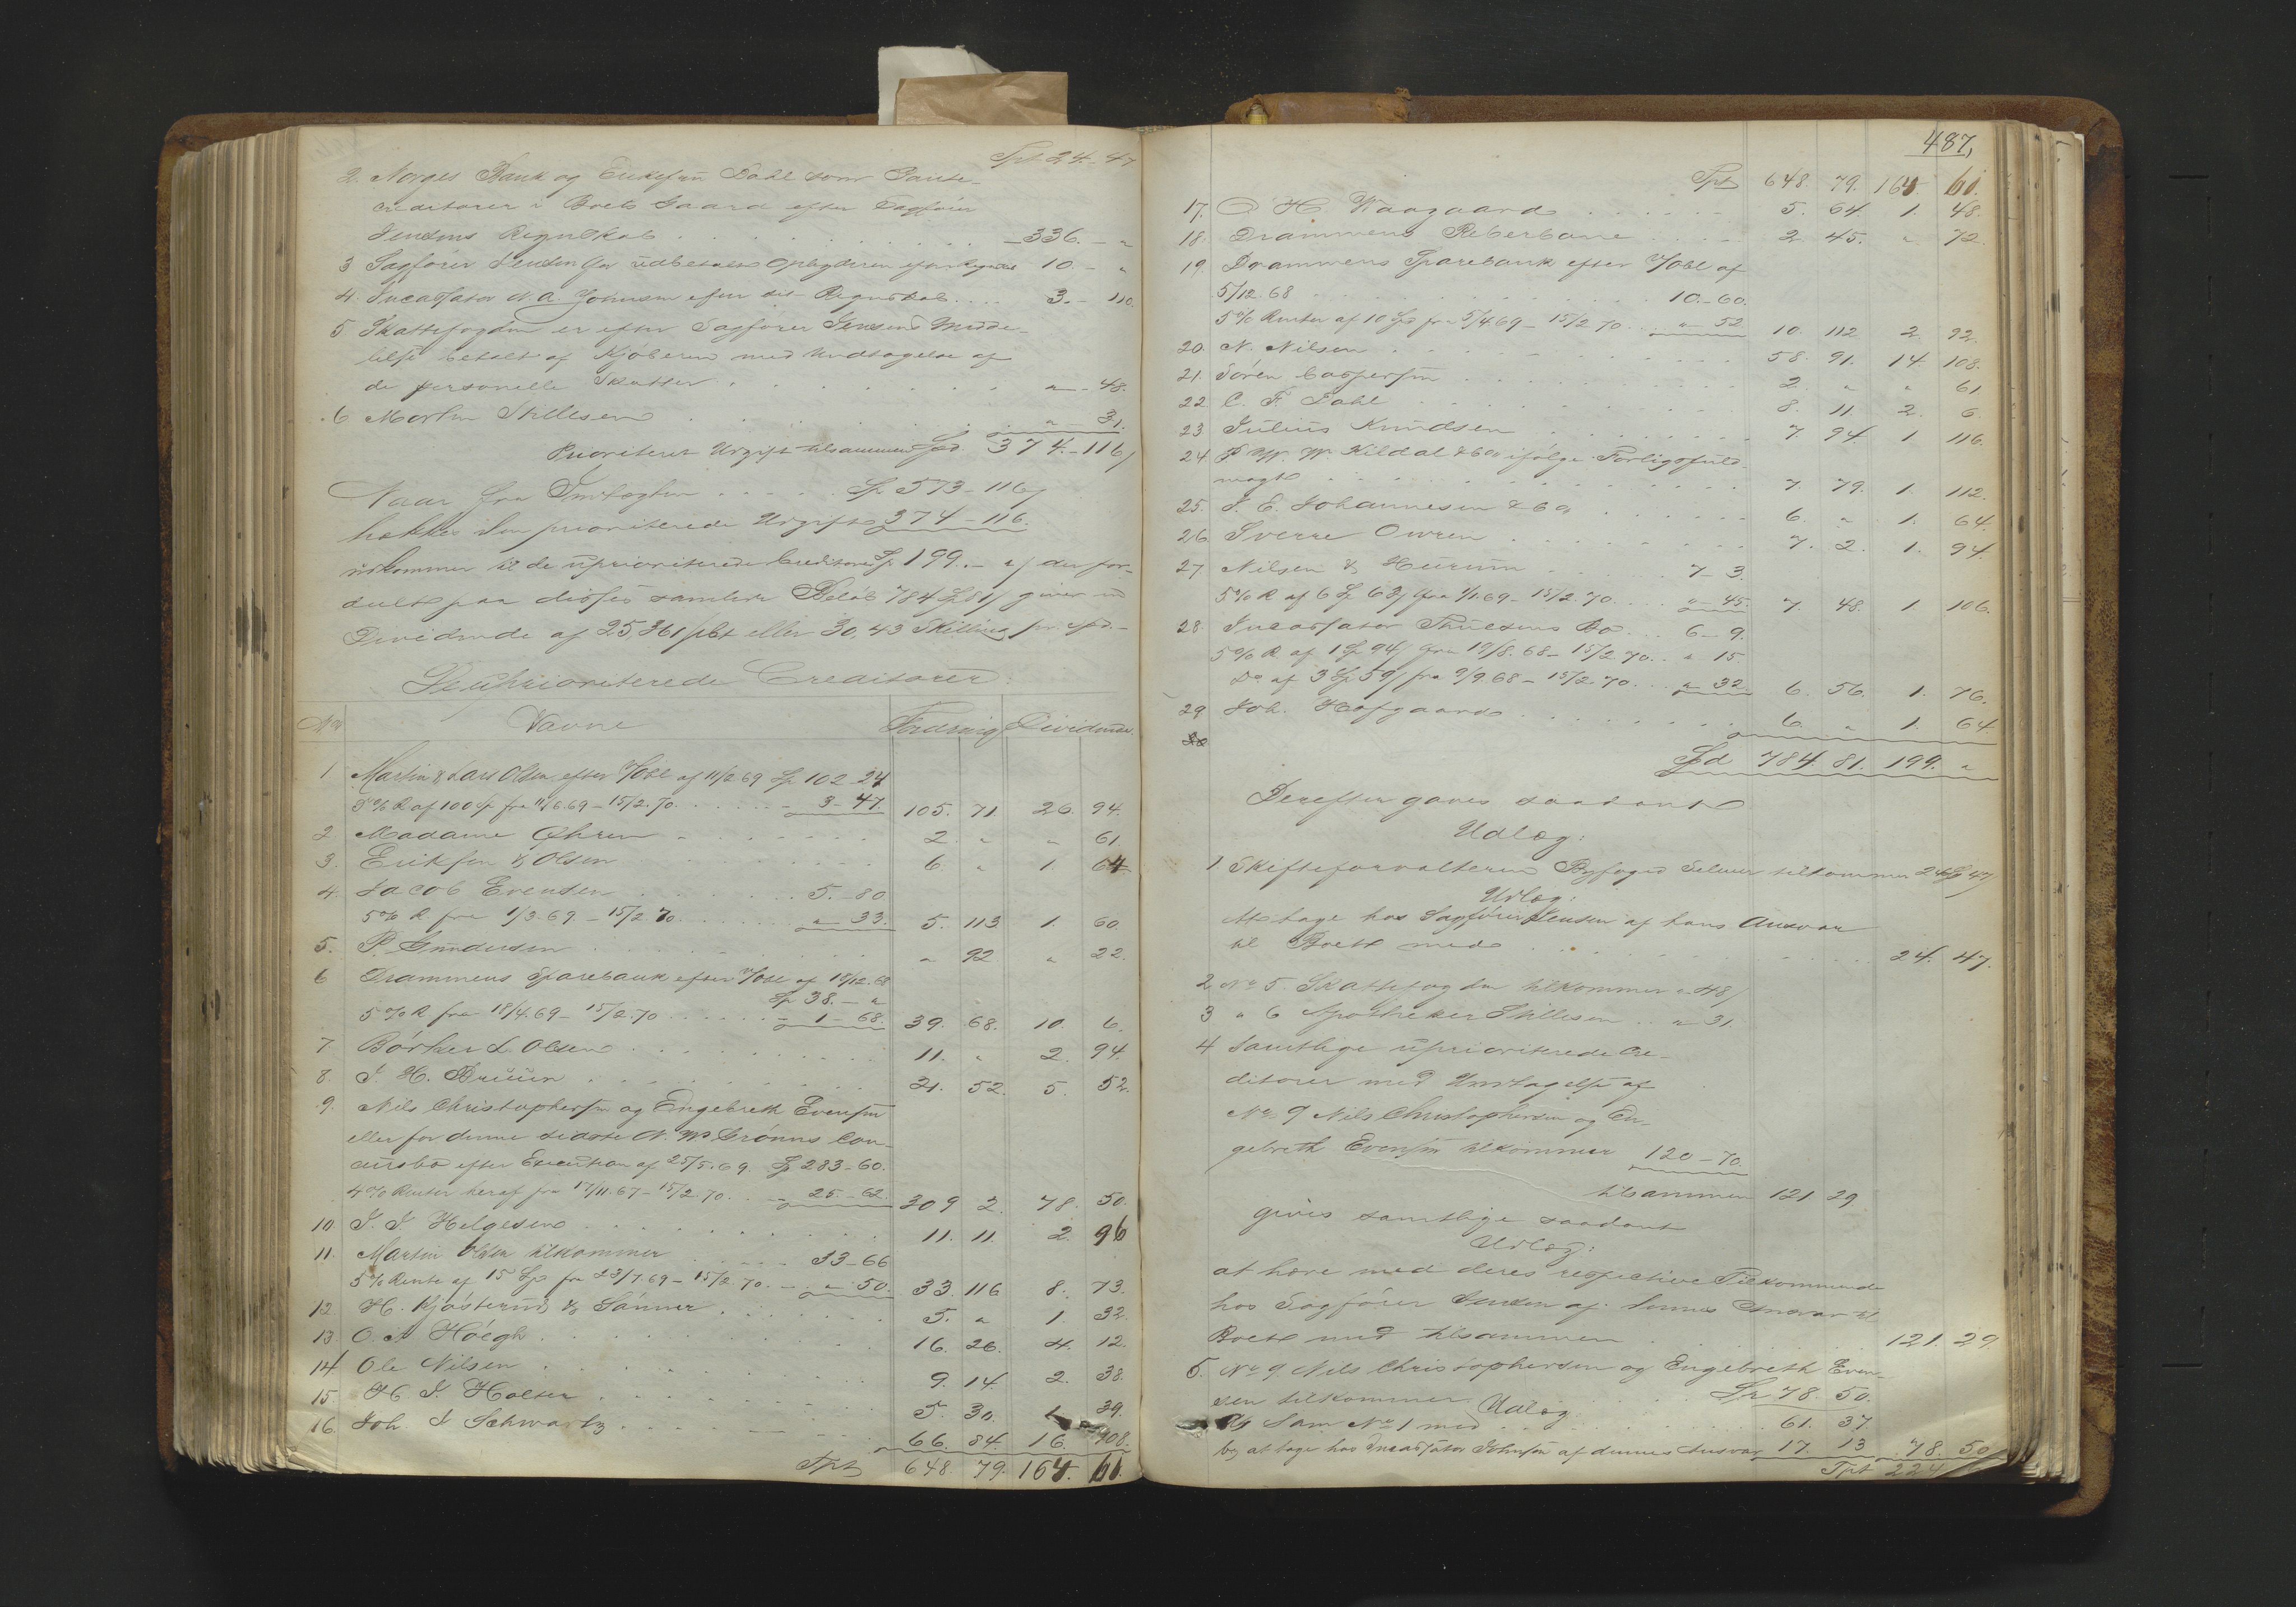 Tpt 24 - 47
2. Norges Bank og Enkefru Dahl som Pante-
creditorer i Boets Gaard efter Sagfører
Jensens Regnskab . . . - 336. - "
3 Sagfører Jensen for udbetalt efter Regnskab 10. - "
4. Incassator N. A. Johnsen efter sit Regnskab . . . 3. - 110.
5 Skattefogden er efter Sagfører Jensens Medde-
lelse betalt af Kjøberen med Undtagelse af
de personelle Skatter . . . " - 48.
6 Morten Stillesen . . . " - 31.
Prioriteret Udgift tilsammen Spd. 374. - 116/
Naar fra Indtægten . . . Sp 573 - 116/
trækkes den prioriterede Udgift 374 - 116.
udkommer til de uprioriterede Creditorer Sp 199. - "/ der for-
delt paa disses samlede Beløb 784 Sp 81/ giver en
Dividende af 25361/ pCt eller 30,43 Skilling pr. Spd. -
De uprioriterede Creditorer:
No Navne Fordring Dividende
1. Martin & Lars Olsen efter Obl af 11/2 69 Sp 102 - 24
5% R af 100 Sp fra 11/6.69 - 15/2.70. . . . - 3 - 47. 105. 71. 26. 94.
2. Madame Øhren . . . 2. " " 61
3. Eriksen & Olsen . . . 6. " 1. 64
4. Jacob Evensen . . . 5. - 80
5% R fra 1/3.69 - 15/2 70. . . . " - 33. 5. 113 1. 60.
5. P. Gundersen . . . " 92 " 22.
6 Drammens Sparebank efter Obl af 18/12.68
Sp 38. - "
5% R fra 18/4.69 - 15/2.70 . . . - 1 - 68. 39. 68. 10. 6.
7. Børker L. Olsen . . . 11. " 2. 94.
8. J. H. Bruun . . . 21. 52. 5. 52.
9. Nils Christophersen og Engebreth Evensen
eller for denne sidste N. Grønns Con-
cursbo efter Execution af 25/5.69. Sp 283 - 60.
4% Renter heraf fra 17/11.67 - 15/2.70. . . - 25 - 62. 309 2. 78. 50.
10. J. J. Helgesen . . . 11. 11. 2. 96
11. Martin Olsen tilkommer . . . 33 - 66
5% Rente af 15 Sp fra 23/7.69 - 15/2.70. - " - 50. 33. 116 8. 73.
12. H. Kjøsterud & Sønner . . . 5. " 1. 32.
13. O. A Høegh . . . 16. 26. 4. 12.
14 Ole Nilsen . . . 9. 14. 2. 38.
15. H. J. Holter . . . 5. 30. 1. 39.
16. Joh. J Schwartz . . . 66. 84. 16. 108.
Tpt 648. 79. 164. 61.
487,
Tpt 648. 79. 164 61.
17. H Waagaard . . . 5. 64. 1. 48.
18. Drammens Reberbane . . . 2. 45. " 72.
19. Drammens Sparebank efter Obl af
5/12.68 . . . 10. - 60.
5% Renter af 10 Sp fra 5/4.69 - 15/2 70. . . " 52. 10. 112 2. 92.
20. N. Nilsen . . . 58. 91. 14. 108.
21. Søren Caspersen . . . 2. " " 61
22. C. F. Dahl . . . 8. 11. 2. 6.
23 Julius Knudsen . . . 7. 94. 1 116.
24 P W. W. Kildal & Co ifølge Forligsfuld-
magt . . . 7. 79. 1. 112.
25. J. E. Johannesen & Co . . . 6. " 1. 64.
26 Sverre Owren . . . 7. 2. 1. 94
27 Nilsen & Hurum . . . 7 - 3.
5% R af 6 Sp 63/ fra 1/1.69 - 15/2.70. . . " - 45. 7. 48. 1. 106.
28 Incassator Thuesens Bo . . . 6 - 9.
5% R af 1 Sp 94/ fra 19/8.68 - 15/2.70. . " 15
Do af 3 Sp 59/ fra 9/9.68 - 15/2.70. . . " 32. 6. 56. 1. 76.
29 Joh. Hofgaard . . . 6. " 1. 64
30
Spd 784. 81. 199. "
Derefter gaves saadant
Udlæg:
1 Skifteforvalteren Byfoged Selmer tilkommer 24 Sp 47/
Udlæg:
At tage hos Sagfører Jensen af hans Ansvar
til Boet med . . . 24. 47.
2 No 5. Skattefogden tilkommer " 48/
3 " 6 Apotheker Stillesen . . " 31.
4 Samtlige uprioriterede Cre-
ditorer med Undtagelse af
No 9 Nils Christophersen og En-
gebreth Evensen tilkommer 120 - 70.
tilsammen 121 29
gives samtlige saadant
Udlæg:
at hæve med deres respective Tilkommende
hos Sagfører Jensen af dennes Ansvar til
Boet med tilsammen . . . 121. 29
5. No 9. Nils Christophersen og Engebreth Even-
sen tilkommer . . . Sp 78. 50.
Udlæg
Som No 1 med . . . 61. 37
og at tage hos Incassator Johnsen af dennes Ansvar 17. 13 78. 50
Tpt 224